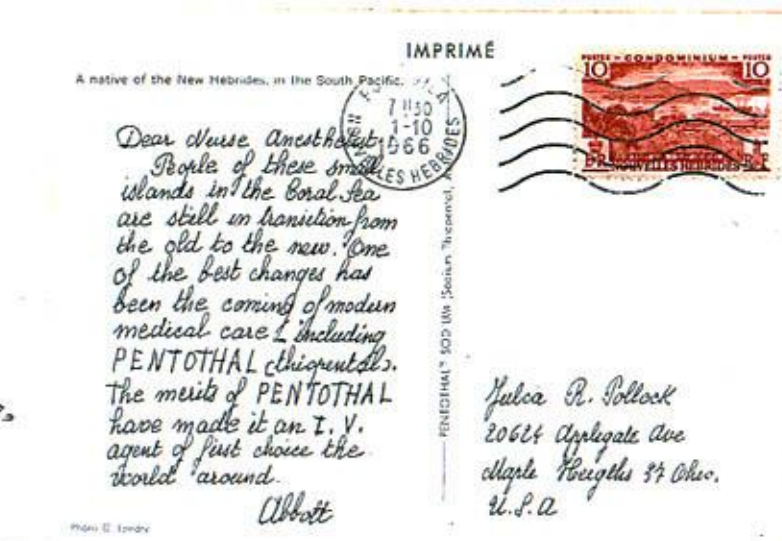 IMPRIMÉ
A native of the New Hebrides, in the South Pacific.
7 H30
1-10
1966
LES HEBRIDES
POSTES - CONDOMINIUM - POSTES
10 10
NOUVELLES HEBRIDES
Dear Nurse Anesthetist
People of these small
islands in the Coral Sea
are still in transition from
the old to the new. One
of the best changes has
been the coming of modern
medical care including
PENTOTHAL (thiopental).
The merits of PENTOTHAL
have made it an I.V.
agent of first choice the
world around.
Abbott
PENTOTHAL® SODIUM (Sodium Thiopental,
Julca R. Pollock
20624 Applegate Ave
Maple Heigths 37 Ohio.
U.S.A
Photo